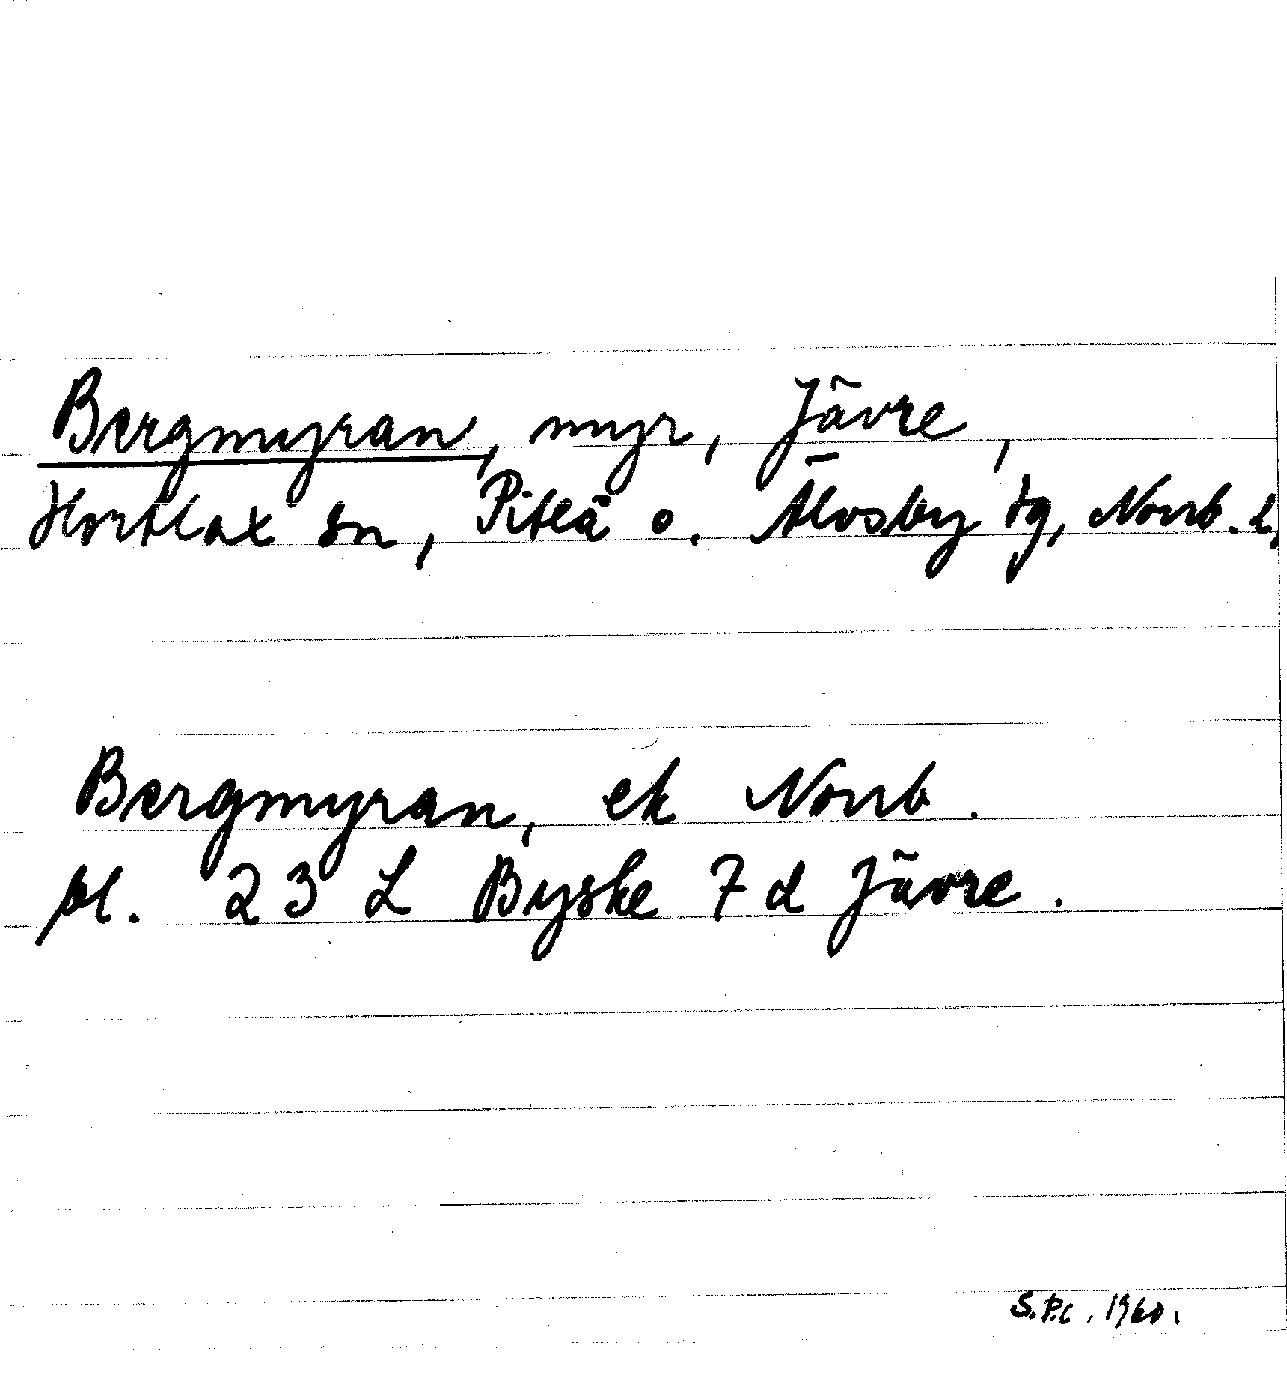 Bergmyran, myr, Jävre,
Hortlax sn, Piteå o. Älvsby tg, Norrb. l,
Bergmyran, ek Norrb.
bl. 23 L Byske 7 d Jävre.
S.P.C. 1960.